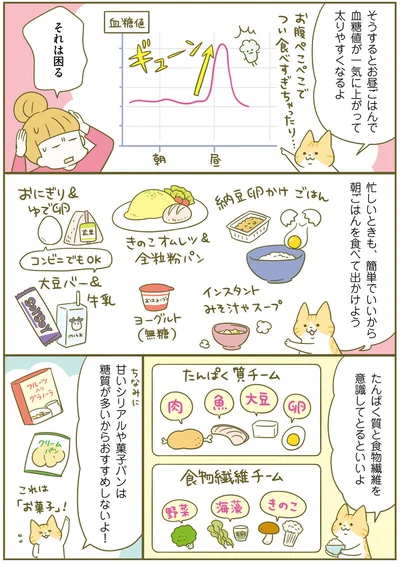 そうするとお昼ごはんで
血糖値が一気に上がって
太りやすくなるよ
お腹ぺこぺこで
つい食べすぎちゃったり…
血糖値
ギューン
朝
昼
それは困る
忙しいときも、簡単でいいから
朝ごはんを食べて出かけよう
納豆卵かけごはん
きのこオムレツ&
全粒粉パン
おにぎり&
ゆで卵
玄米
コンビニでもOK
大豆バー&
牛乳
milk
ヨーグルト
(無糖)
インスタント
みそ汁やスープ
たんぱく質と食物繊維を
意識してとるといいよ
たんぱく質チーム
肉
魚
大豆
卵
食物繊維チーム
野菜
海藻
きのこ
ちなみに
甘いシリアルや菓子パンは
糖質が多いからおすすめしないよ!
フルーツ
入り
グラノーラ
クリーム
パン
これは
「お菓子」!